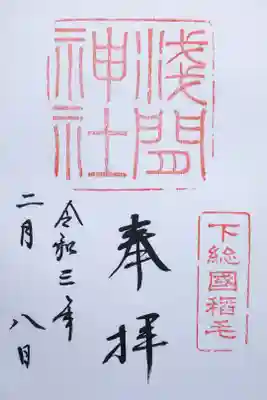 浅間
神社
奉拝
下総國稲毛
令和三年
二月八日